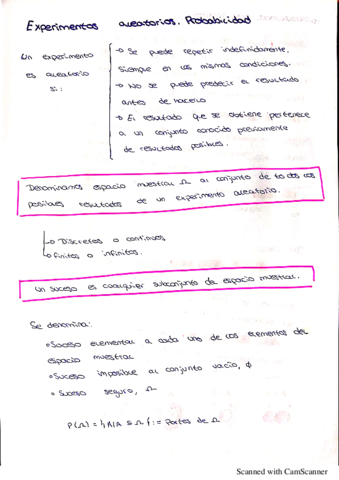 Experimentos aleatorios. Probabilidad
Un experimento es aleatorio si:
→ Se puede repetir indefinidamente,
siempre en las mismas condiciones.
→ No se puede predecir el resultado
antes de hacerlo
→ El resultado que se obtiene pertenece
a un conjunto conocido previamente
de resultados posibles.
Denominamos espacio muestral Ω al conjunto de todos los
posibles resultados de un experimento aleatorio.
↳ Discretos o continuos
↳ finitos o infinitos.
Un suceso es cualquier subconjunto de espacio muestral.
Se denomina:
• Suceso elemental a cada uno de los elementos del
espacio muestral
• Suceso imposible al conjunto vacío, ϕ
• Suceso seguro, Ω
P(Ω) = {A/A ⊆ Ω} := Partes de Ω
Scanned with CamScanner